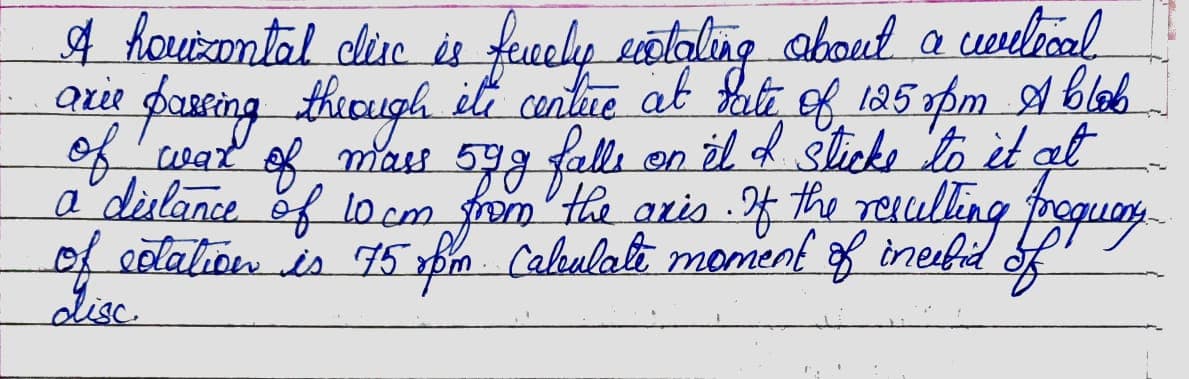 A horizontal disc is freely rotating about a vertical
axis passing through its centre at rate of 125 rpm A blob
of wax of mass 59g falls on it & sticks to it at
a distance of 10 cm from the axis. If the resulting frequency
of rotation is 75 rpm. Calculate moment of inertia of
disc.